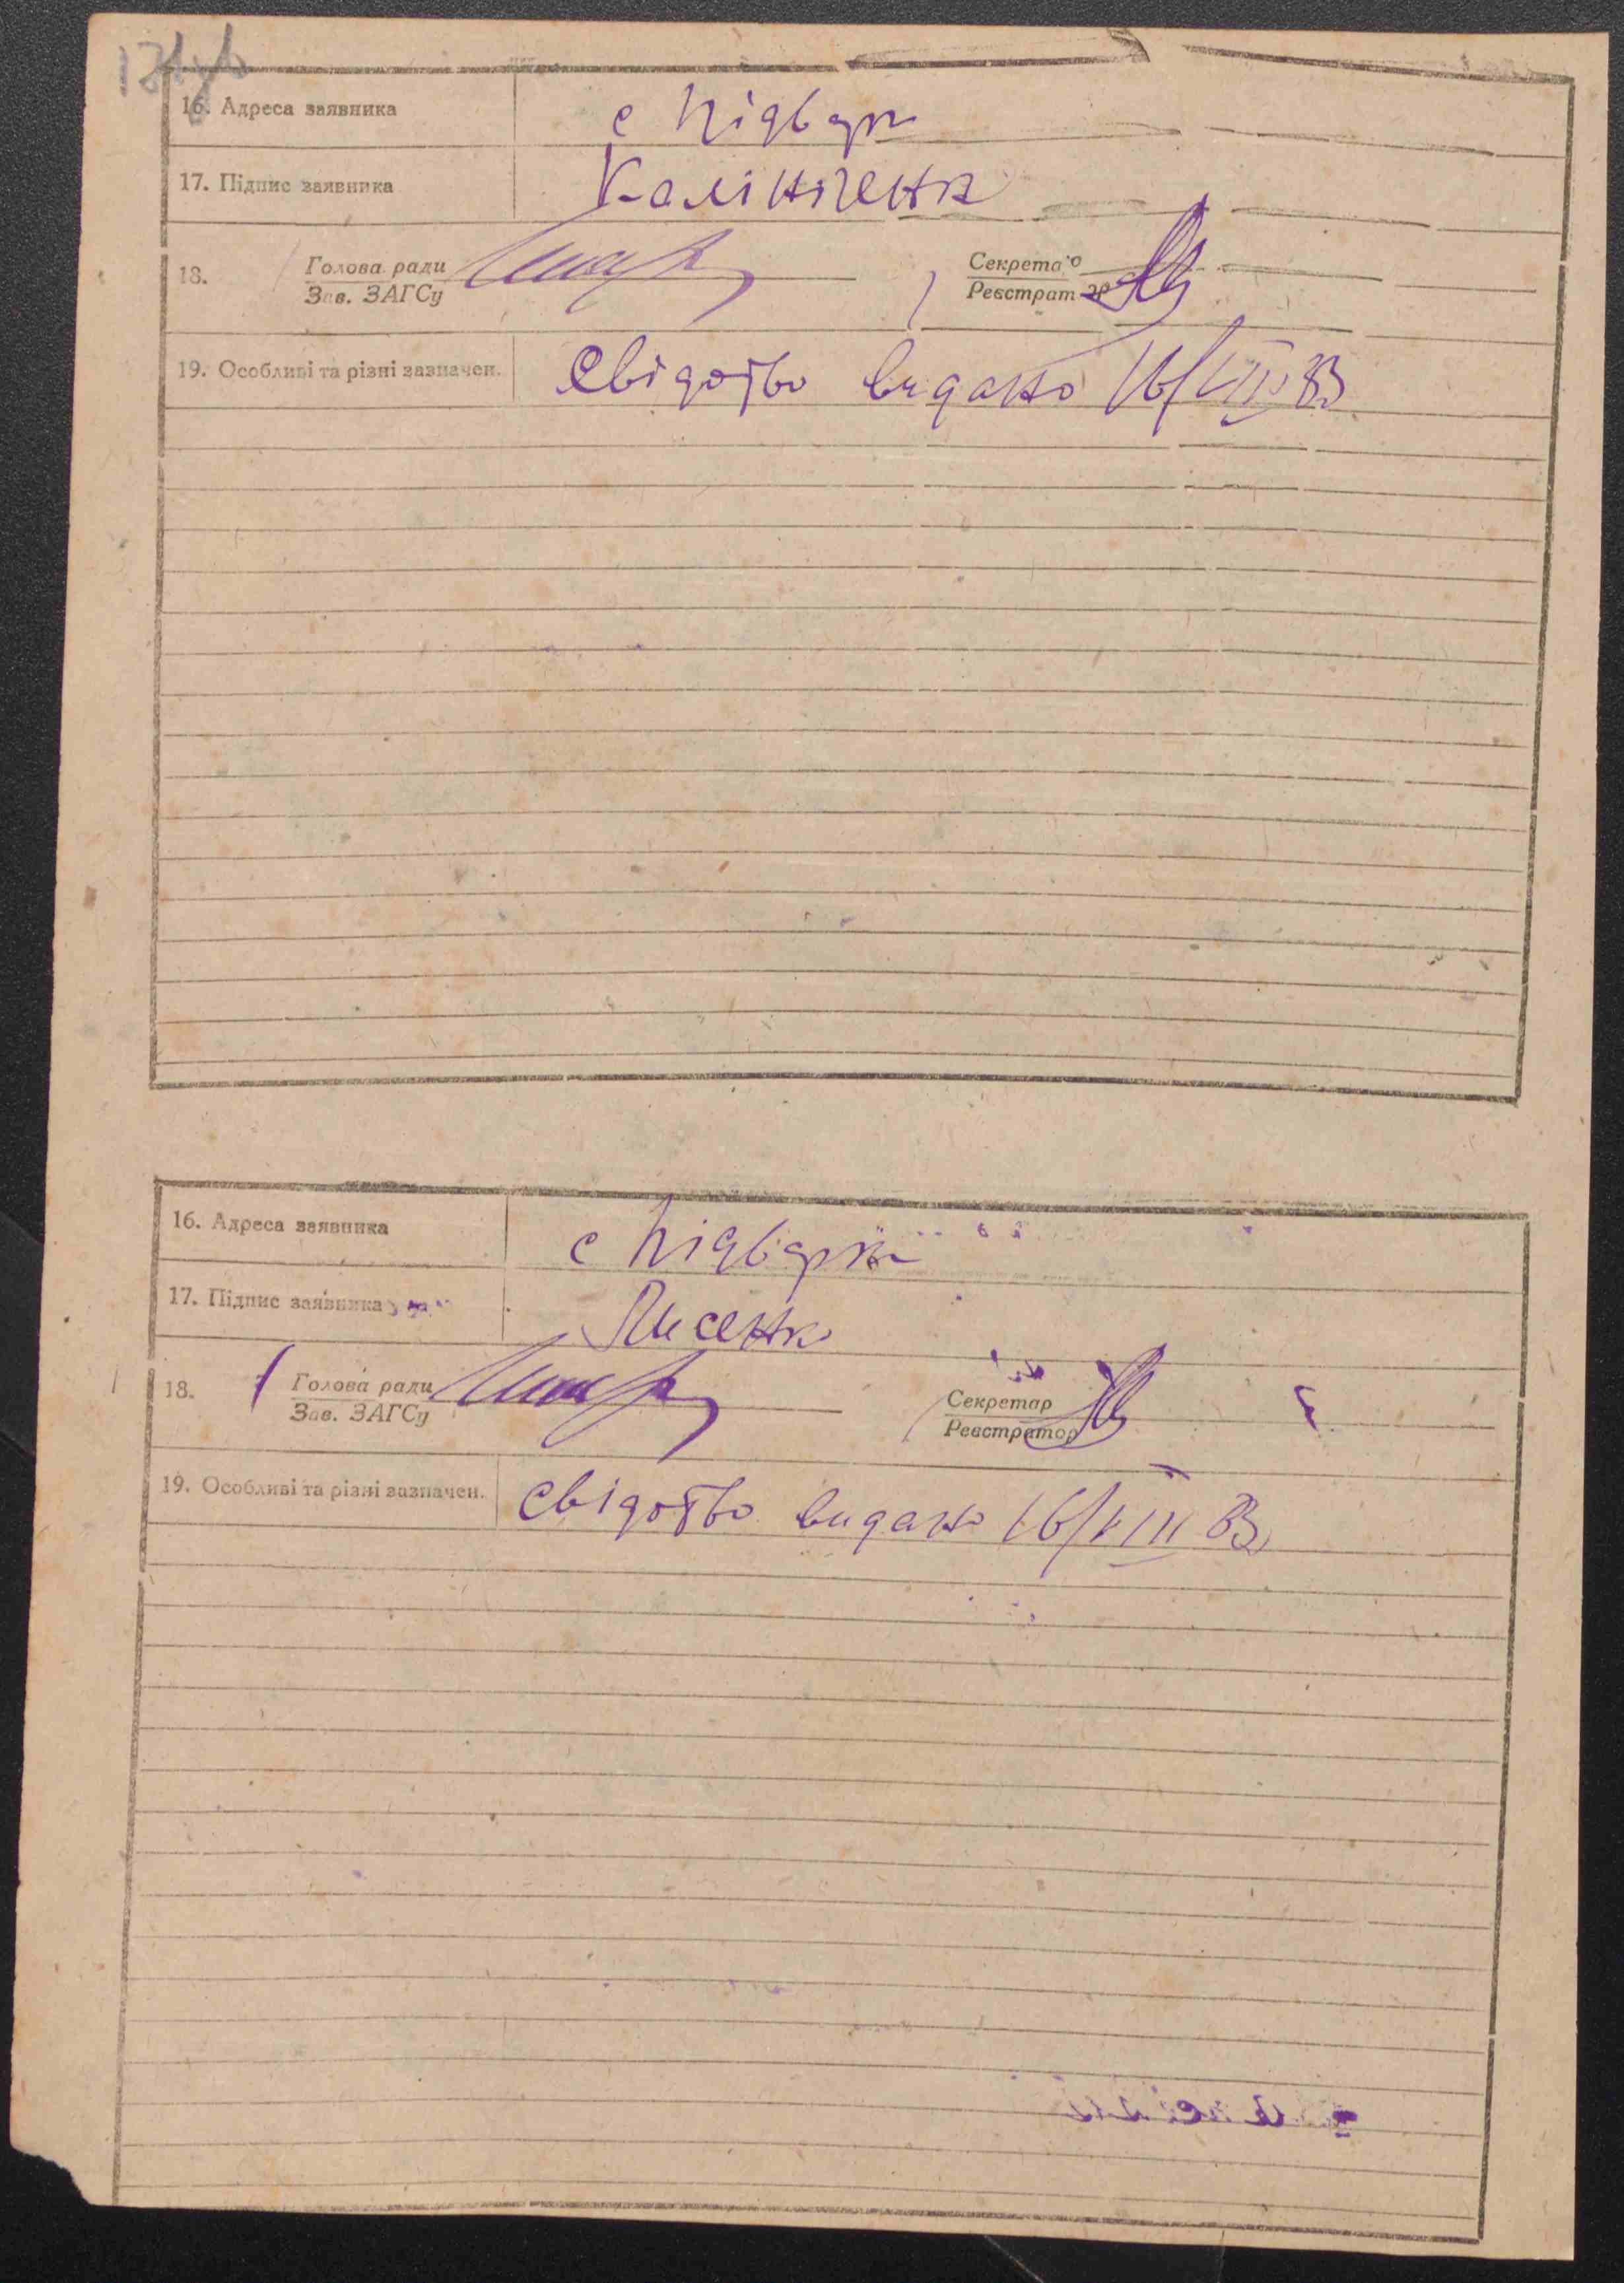 16. Адреса заявника с Підварки
17. Підпис заявника Калініченко
18. Голова ради Секретар
Зав. ЗАГСу Реєстратор
19. Особливі та різні зазначен. Свідотво видано 16/VIII 83
16. Адреса заявника с Підварки
17. Підпис заявника Лисенко
18. Голова ради Секретар
Зав. ЗАГСу Реєстратор
19. Особливі та різні зазначен. Свідотво видано 16/VIII 83